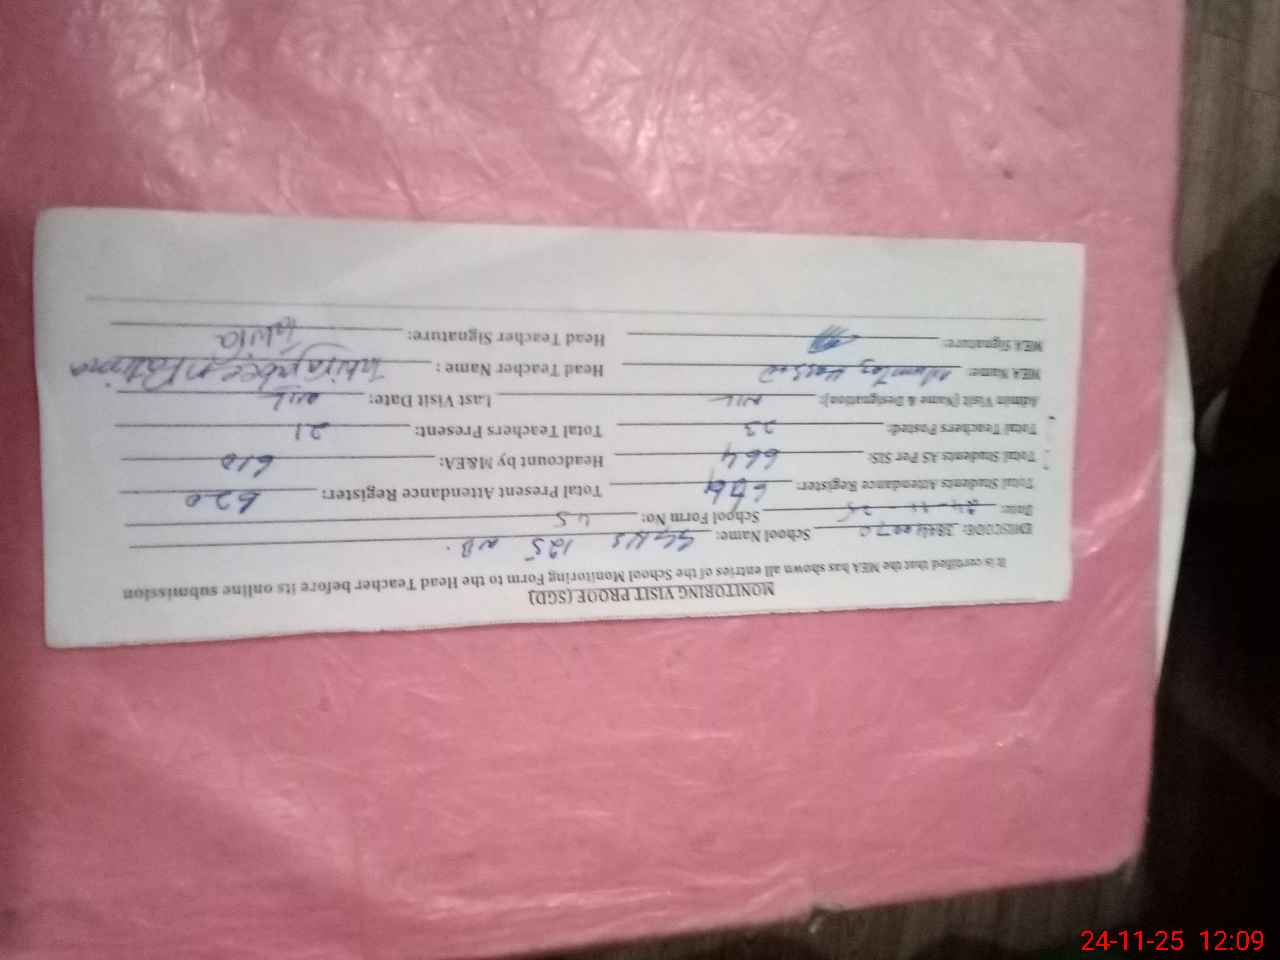 MONITORING VISIT PROOF (SGD)
It is certified that the MEA has shown all entries of the School Monitoring Form to the Head Teacher before its online submission
EMISCODE: 38440070 School Name: GGHS 125 NB.
Date: 24-11-25 School Form No: 45
Total Students Attendance Register: 664 Total Present Attendance Register: 620
Total Students AS Per SIS: 664 Headcount by M&EA: 610
Total Teachers Posted: 23 Total Teachers Present: 21
Admin Visit (Name & Designation): NIL Last Visit Date: NIL
MEA Name: Mumtaz Hassan Head Teacher Name: Fatima
MEA Signature: Head Teacher Signature:
24-11-25 12:09